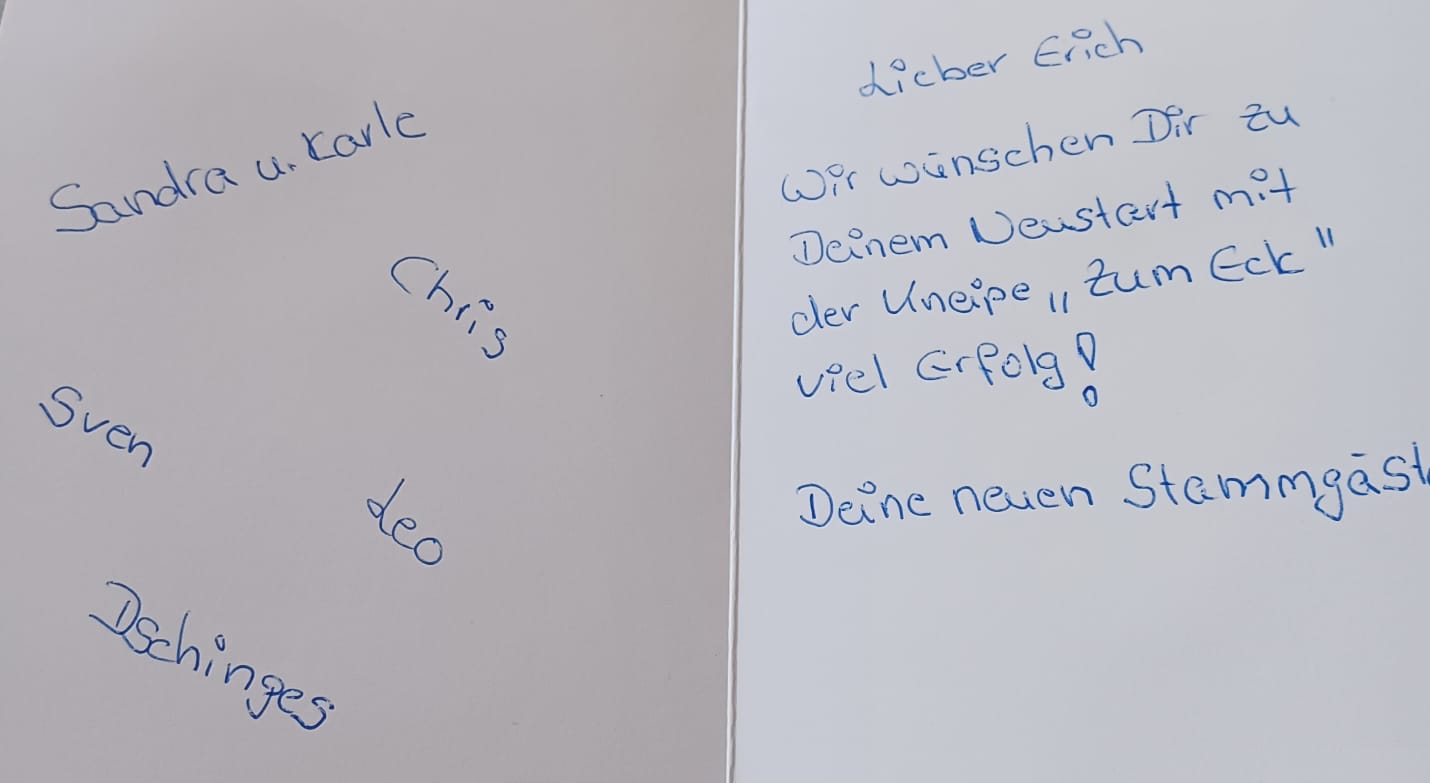 Sandra u. Karle
Chris
Sven
Leo
Dschinges
Lieber Erich
Wir wünschen Dir zu
Deinem Neustart mit
der Kneipe „Zum Eck"
viel Erfolg!
Deine neuen Stammgäst